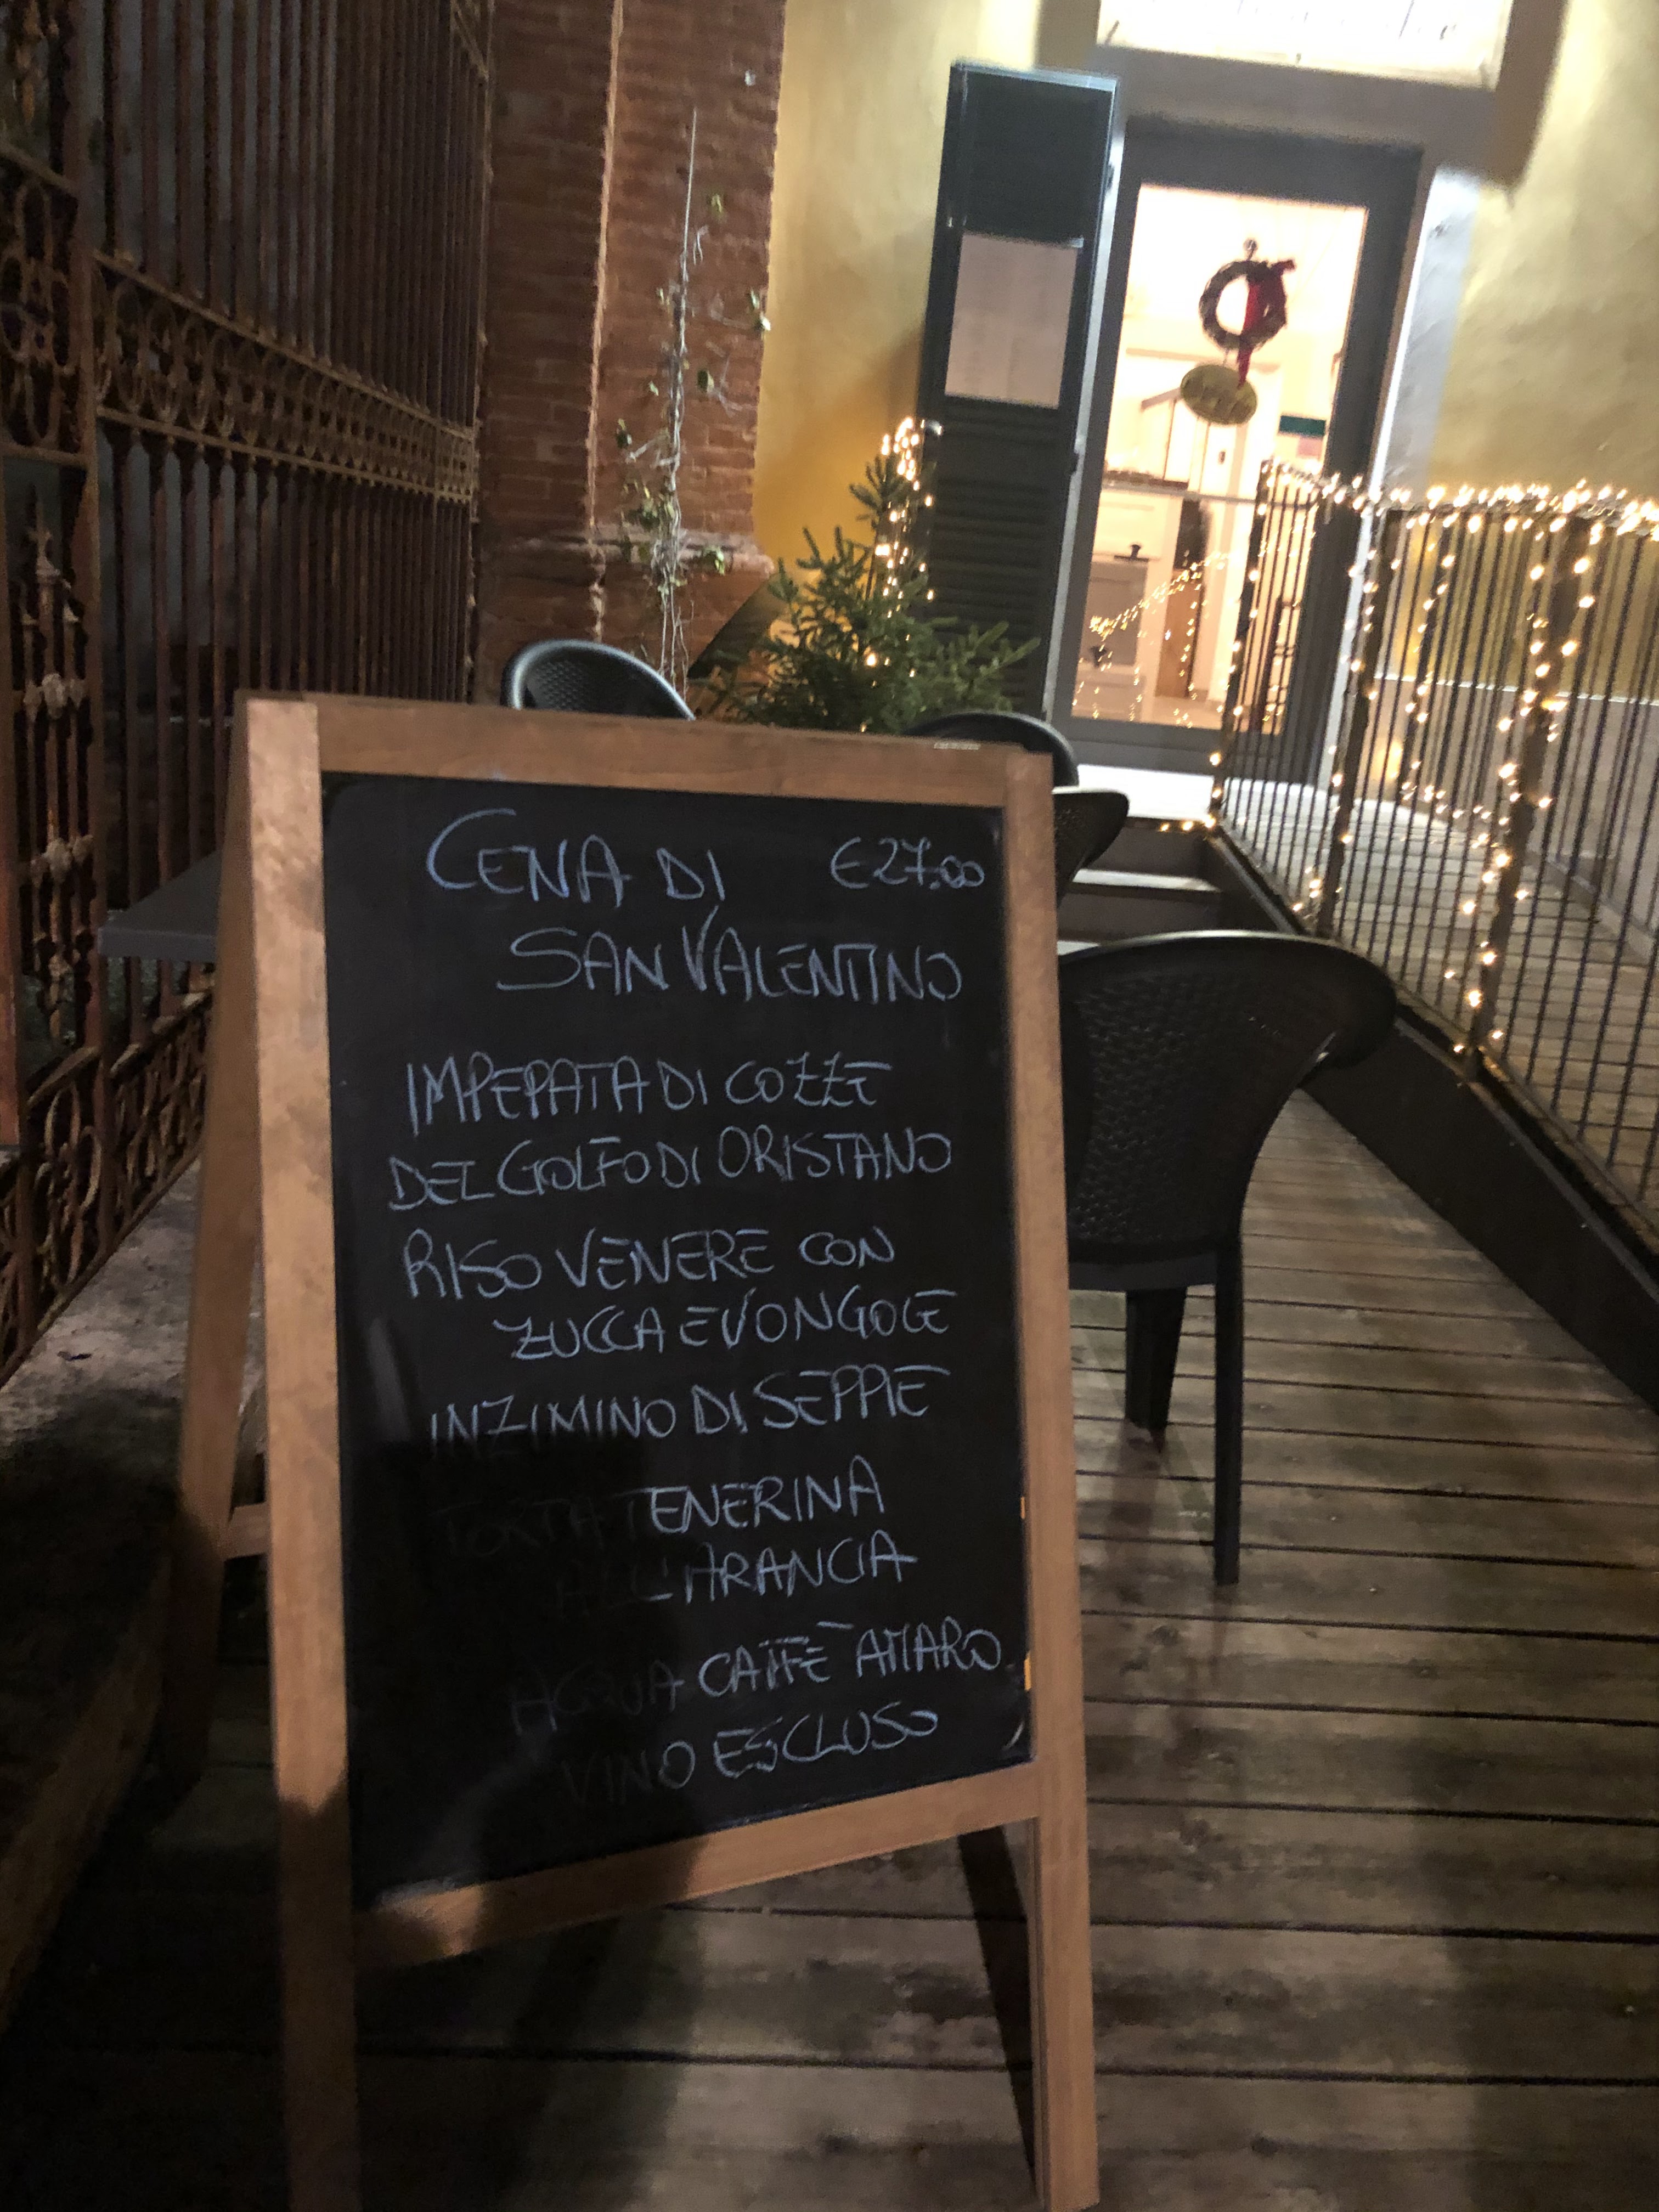 CENA DI €27.00
SAN VALENTINO
IMPEPATA DI COZZE
DEL GOLFO DI ORISTANO
RISO VENERE CON
ZUCCA E VONGOLE
INZIMINO DI SEPPIE
TORTA TENERINA
ALL'ARANCIA
ACQUA CAFFÈ AMARO
VINO ESCLUSO